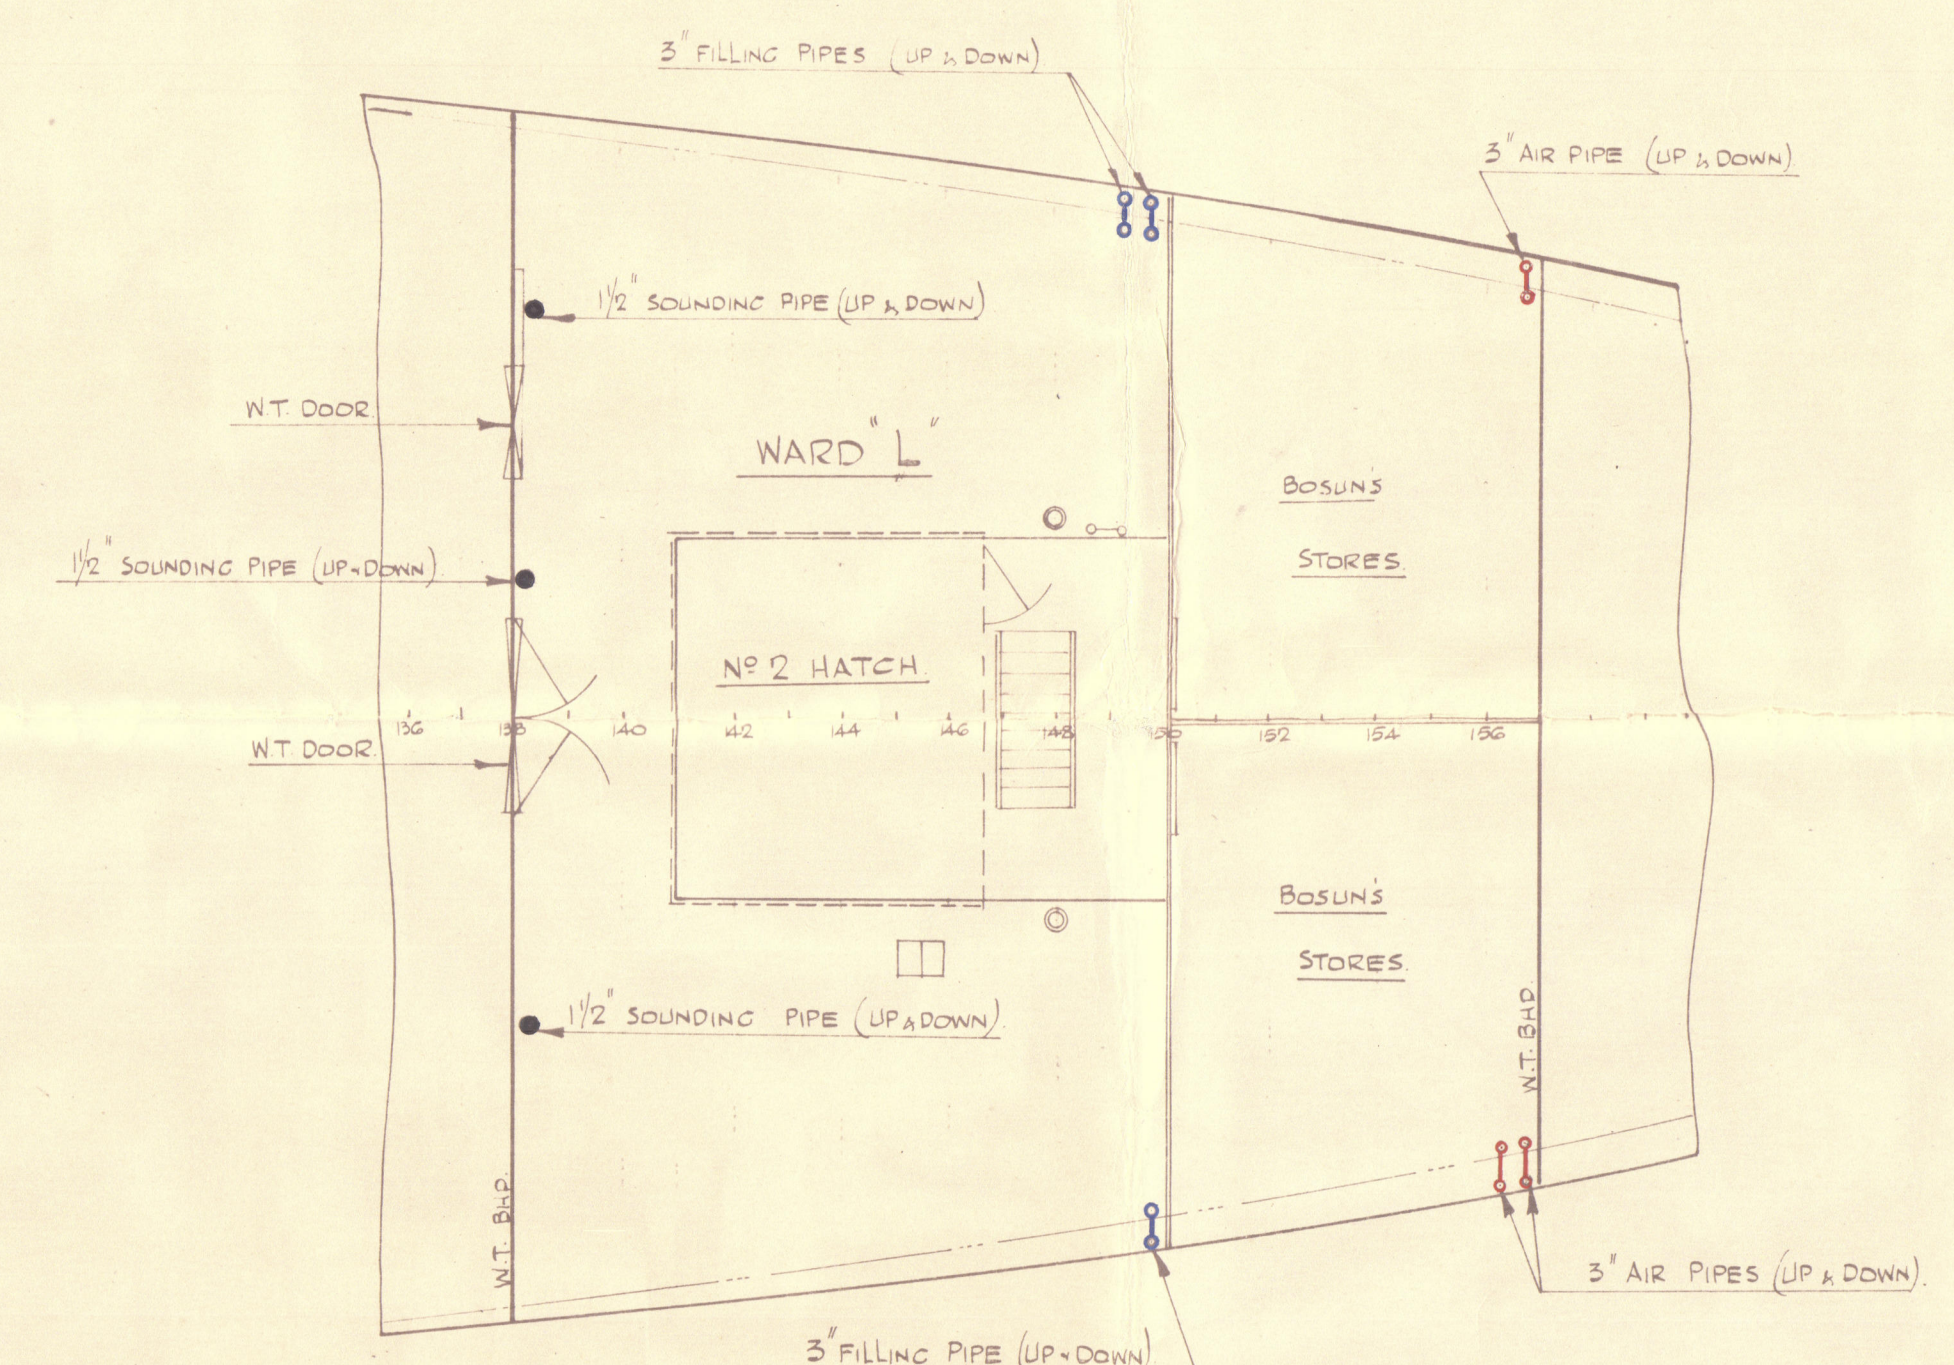 3" FILLING PIPES (UP & DOWN)
3" AIR PIPE (UP & DOWN)
1 1/2" SOUNDING PIPE (UP & DOWN)
W.T. DOOR.
WARD "L"
BOSUN'S
STORES.
1 1/2" SOUNDING PIPE (UP & DOWN)
Nº 2 HATCH.
136 138 140 142 144 146 148 150 152 154 156
W.T. DOOR.
BOSUN'S
STORES.
1 1/2" SOUNDING PIPE (UP & DOWN).
W.T. BHD.
W.T. BHD.
3" AIR PIPES (UP & DOWN).
3" FILLING PIPE (UP & DOWN)